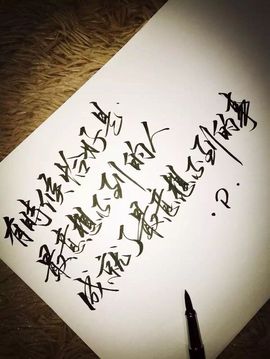 有时候恰好是
最意想不到的人
成就了最意想不到的事
.D.